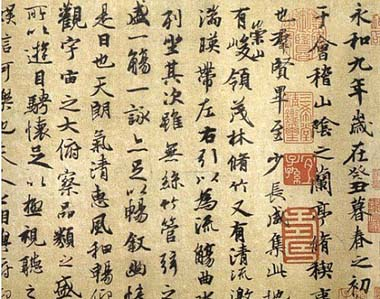 永和九年歲在癸丑暮春之初
于會稽山陰之蘭亭脩禊事
也羣賢畢至少長咸集此地
有崇山峻領茂林脩竹又有清流激
湍暎帶左右引以為流觴曲水
列坐其次雖無絲竹管弦之
盛一觴一詠亦足以暢敘幽情
是日也天朗氣清惠風和暢仰
觀宇宙之大俯察品類之盛
所以遊目騁懷足以極視聽之
娛信可樂也夫人之相與